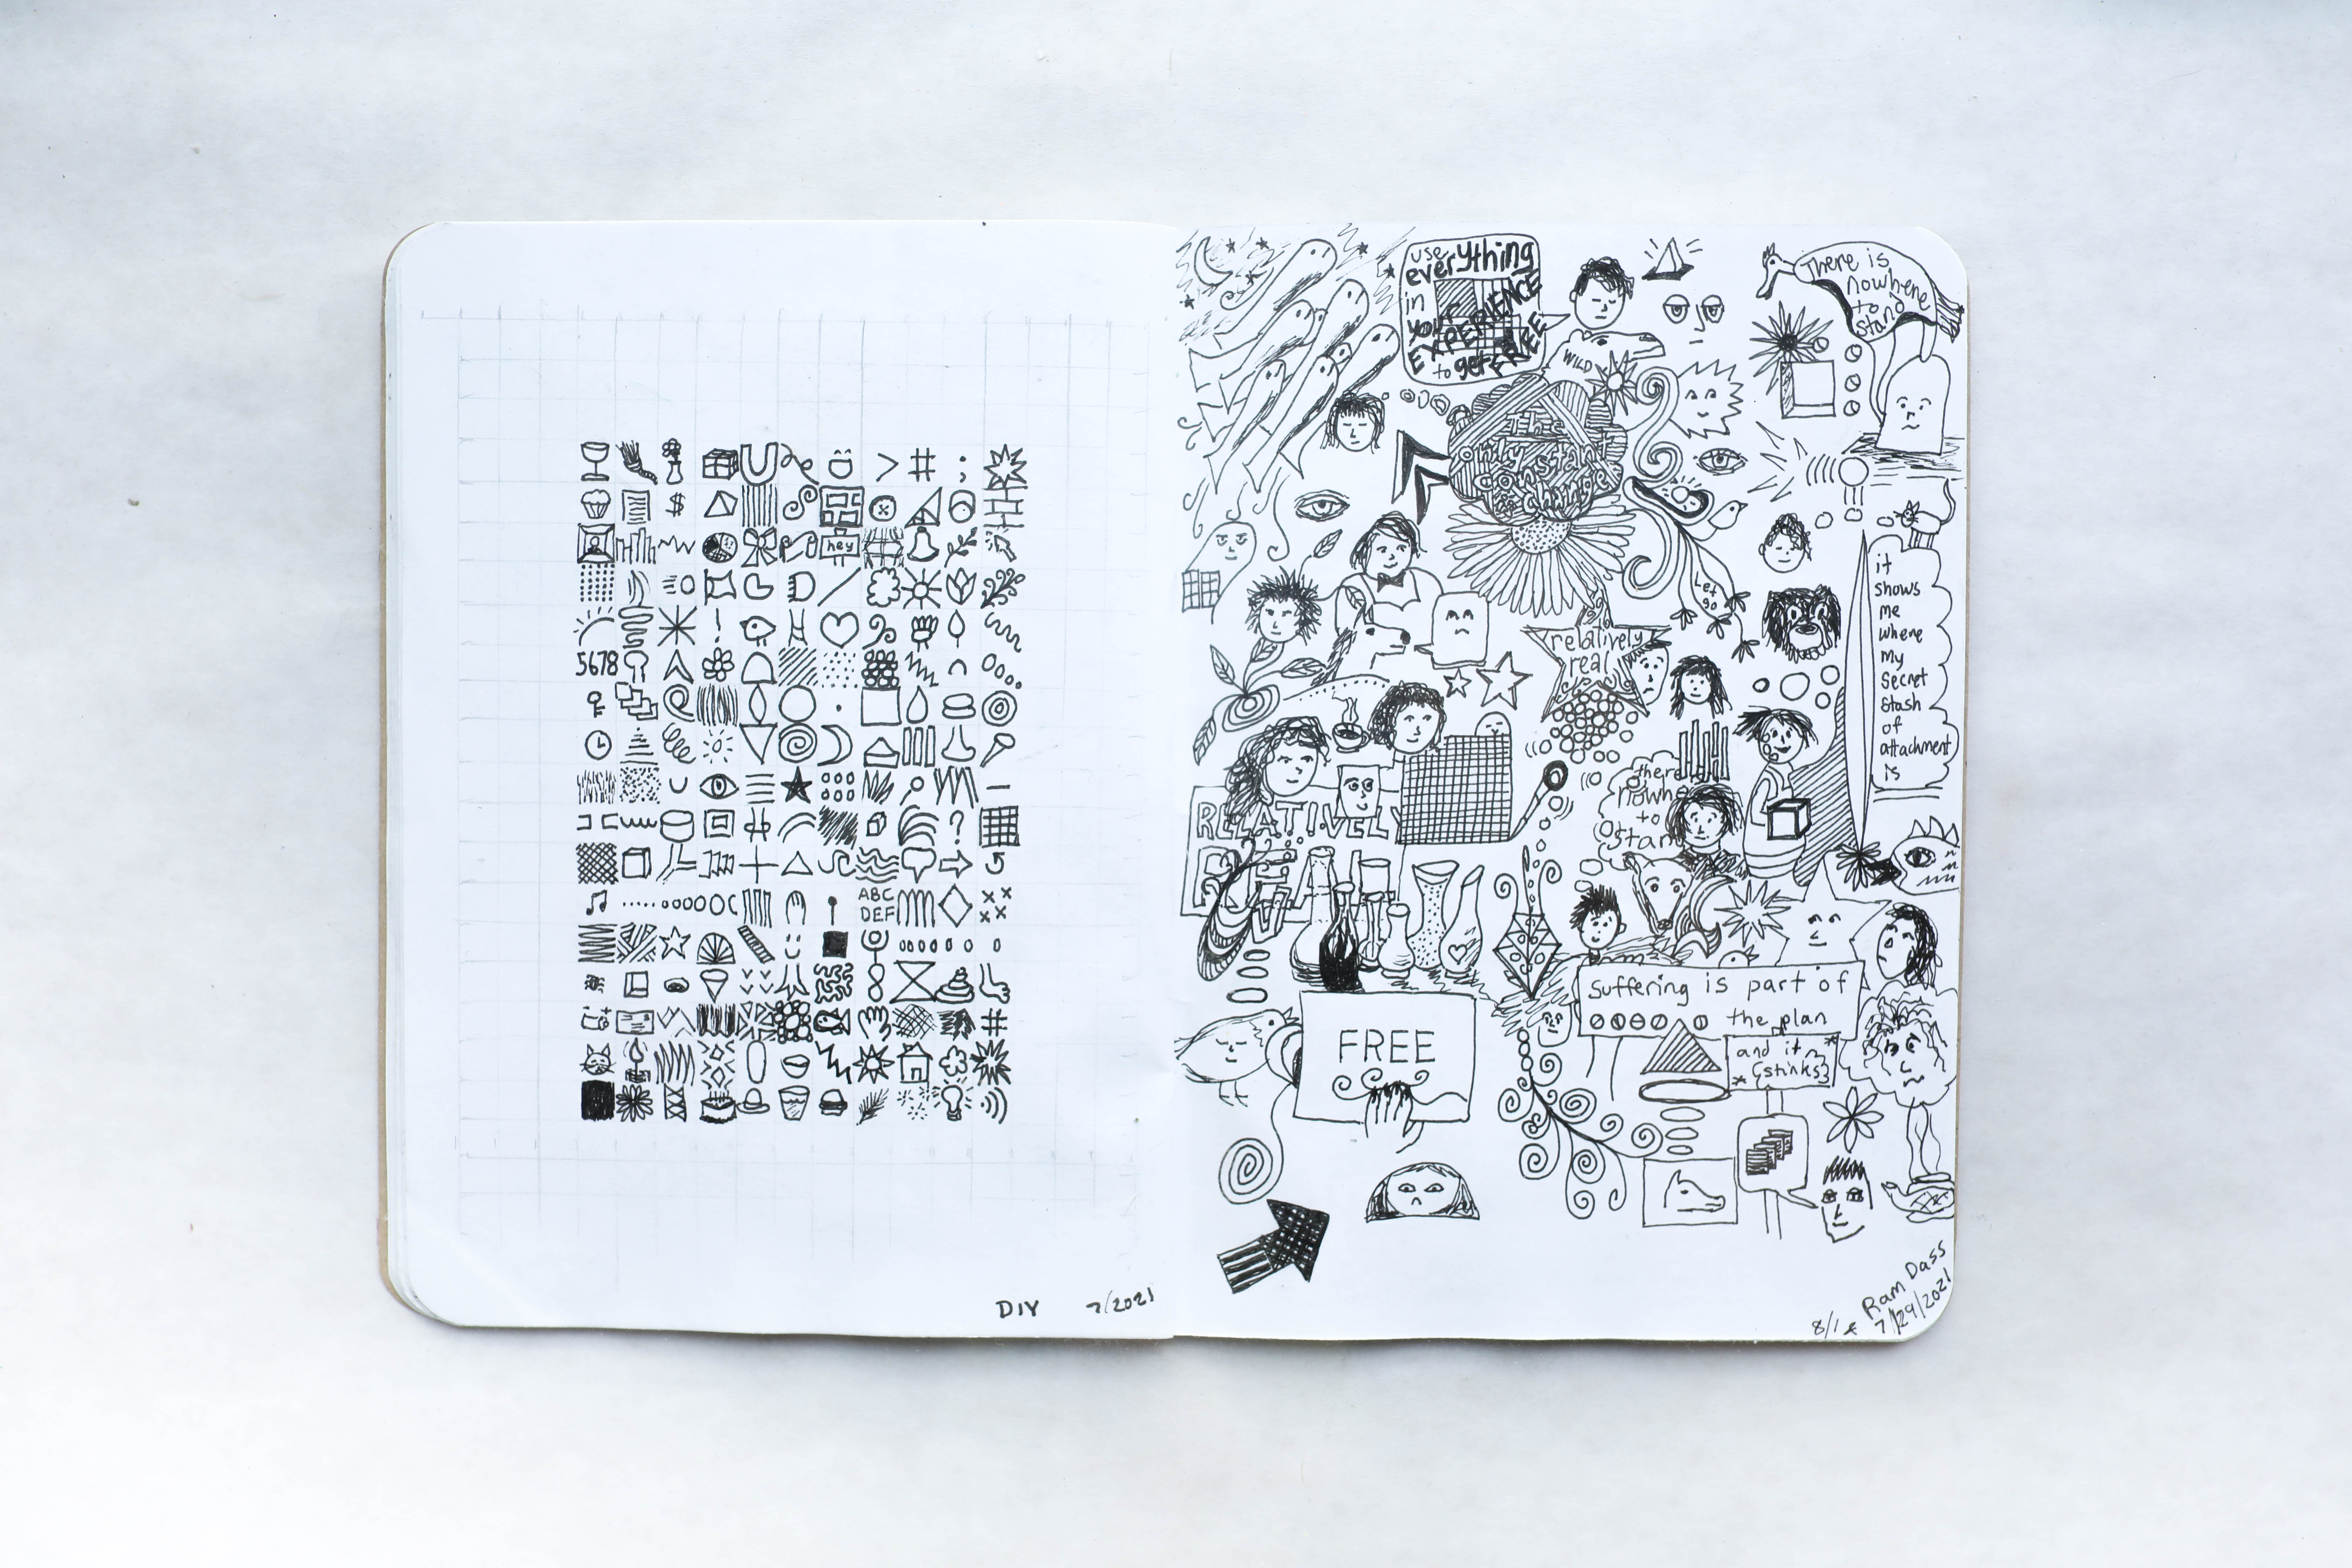 $
hey
5678
ABC
DEF
DIY 7/2021
use
everything
in
your
EXPERIENCE
to get FREE
There is
nowhere
to
stand
WILD
the
only
constant
change
Let
go
relatively
real
it
shows
me
where
my
secret
stash
of
attachment
is
RELATIVELY
REAL
there
nowhe
to
stan
Suffering is part of
the plan
and it
*stinks*
FREE
Ram Dass
7/29/2021
8/1